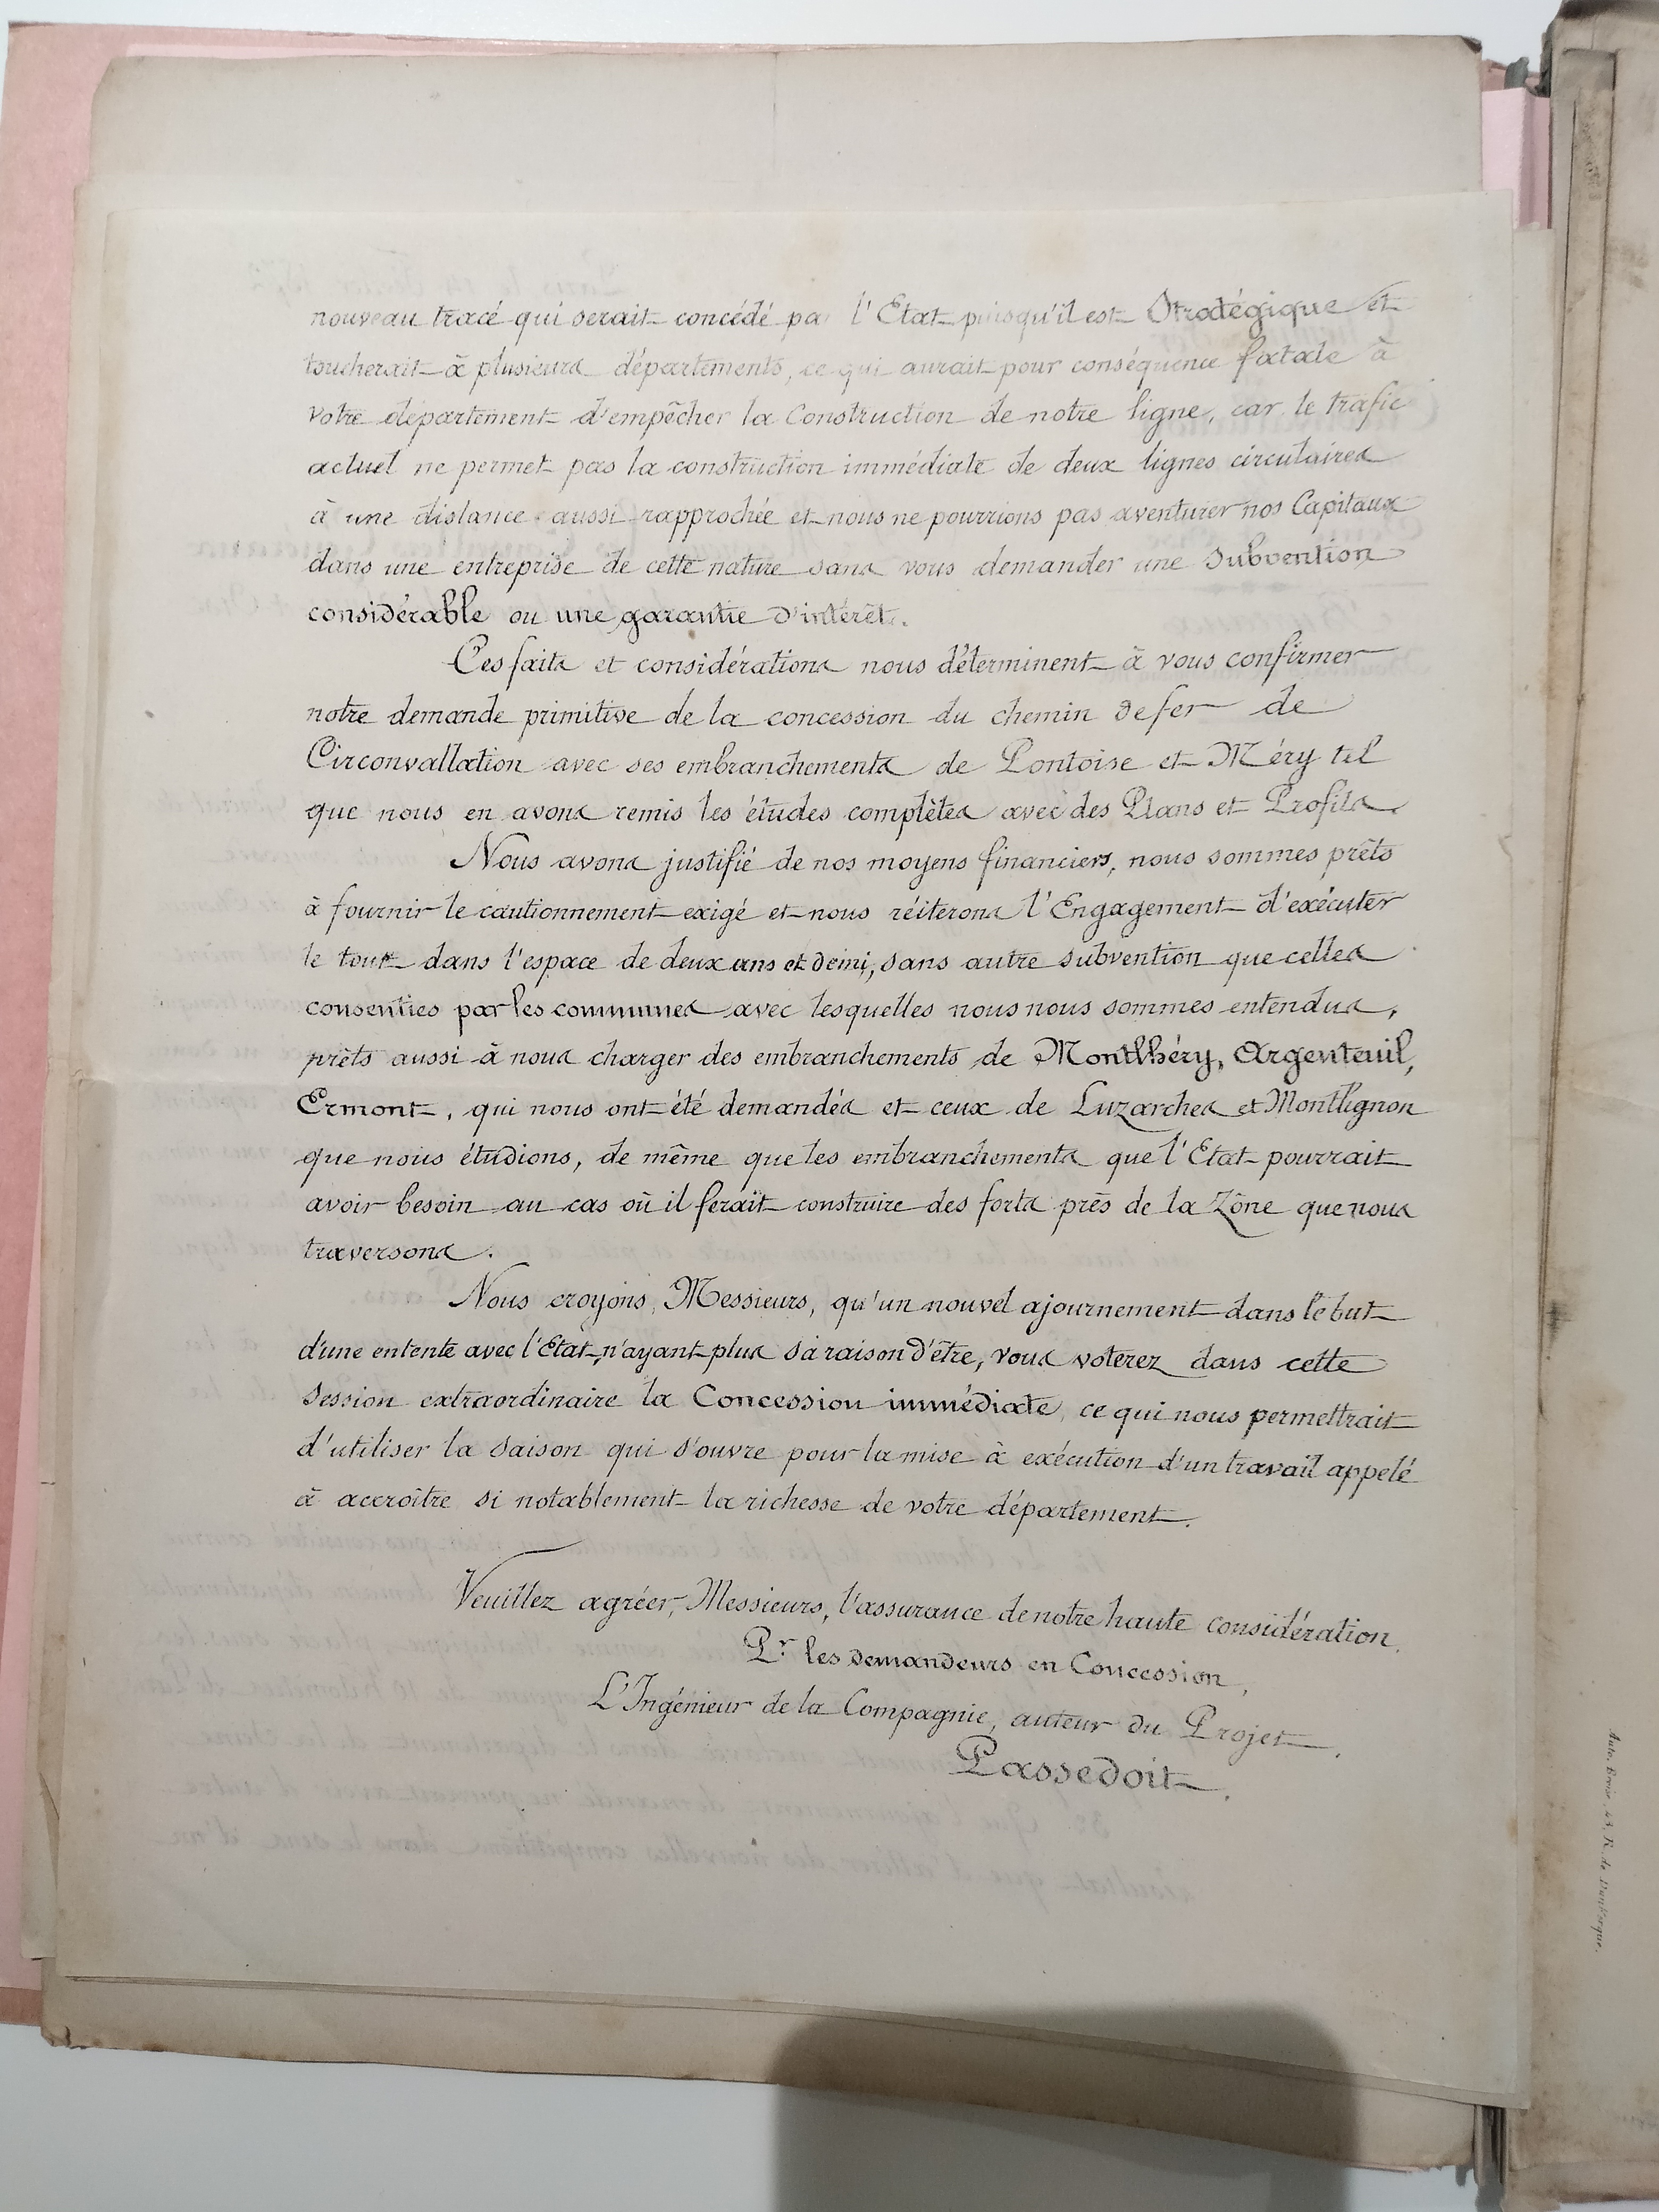 nouveau tracé qui serait concédé par l'Etat puisqu'il est Stratégique et
toucherait à plusieurs départements, ce qui aurait pour conséquence fatale à
votre département d'empêcher la Construction de notre ligne, car le trafic
actuel ne permet pas la construction immédiate de deux lignes circulaires
à une distance aussi rapprochée et nous ne pourrions pas aventurer nos Capitaux
dans une entreprise de cette nature sans vous demander une Subvention
considérable ou une garantie d'intérêt.
Ces faits et considérations nous déterminent à vous confirmer
notre demande primitive de la concession du chemin de fer de
Circonvallation avec ses embranchements de Pontoise et Méry tel
que nous en avons remis les études complètes avec des Plans et Profils.
Nous avons justifié de nos moyens financiers, nous sommes prêts
à fournir le cautionnement exigé et nous réiterons l'Engagement d'exécuter
le tout dans l'espace de deux ans et demi, sans autre subvention que celles
consenties par les communes avec lesquelles nous nous sommes entendus,
prêts aussi à nous charger des embranchements de Montlhéry, Argenteuil,
Ermont, qui nous ont été demandés et ceux de Luzarches et Montlignon
que nous étudions, de même que les embranchements que l'Etat pourrait
avoir besoin au cas où il ferait construire des forts près de la Zône que nous
traversons.
Nous croyons, Messieurs, qu'un nouvel ajournement dans le but
d'une entente avec l'Etat, n'ayant plus sa raison d'être, vous voterez dans cette
Session extraordinaire la Concession immédiate, ce qui nous permettrait
d'utiliser la saison qui s'ouvre pour la mise à exécution d'un travail appelé
à accroître si notablement la richesse de votre département.
Veuillez agréer, Messieurs, l'assurance de notre haute considération.
Pr. les demandeurs en Concession,
L'Ingénieur de la Compagnie, auteur du Projet,
Passedoit.
Auto. Broise, 43, R. de Dunkerque.